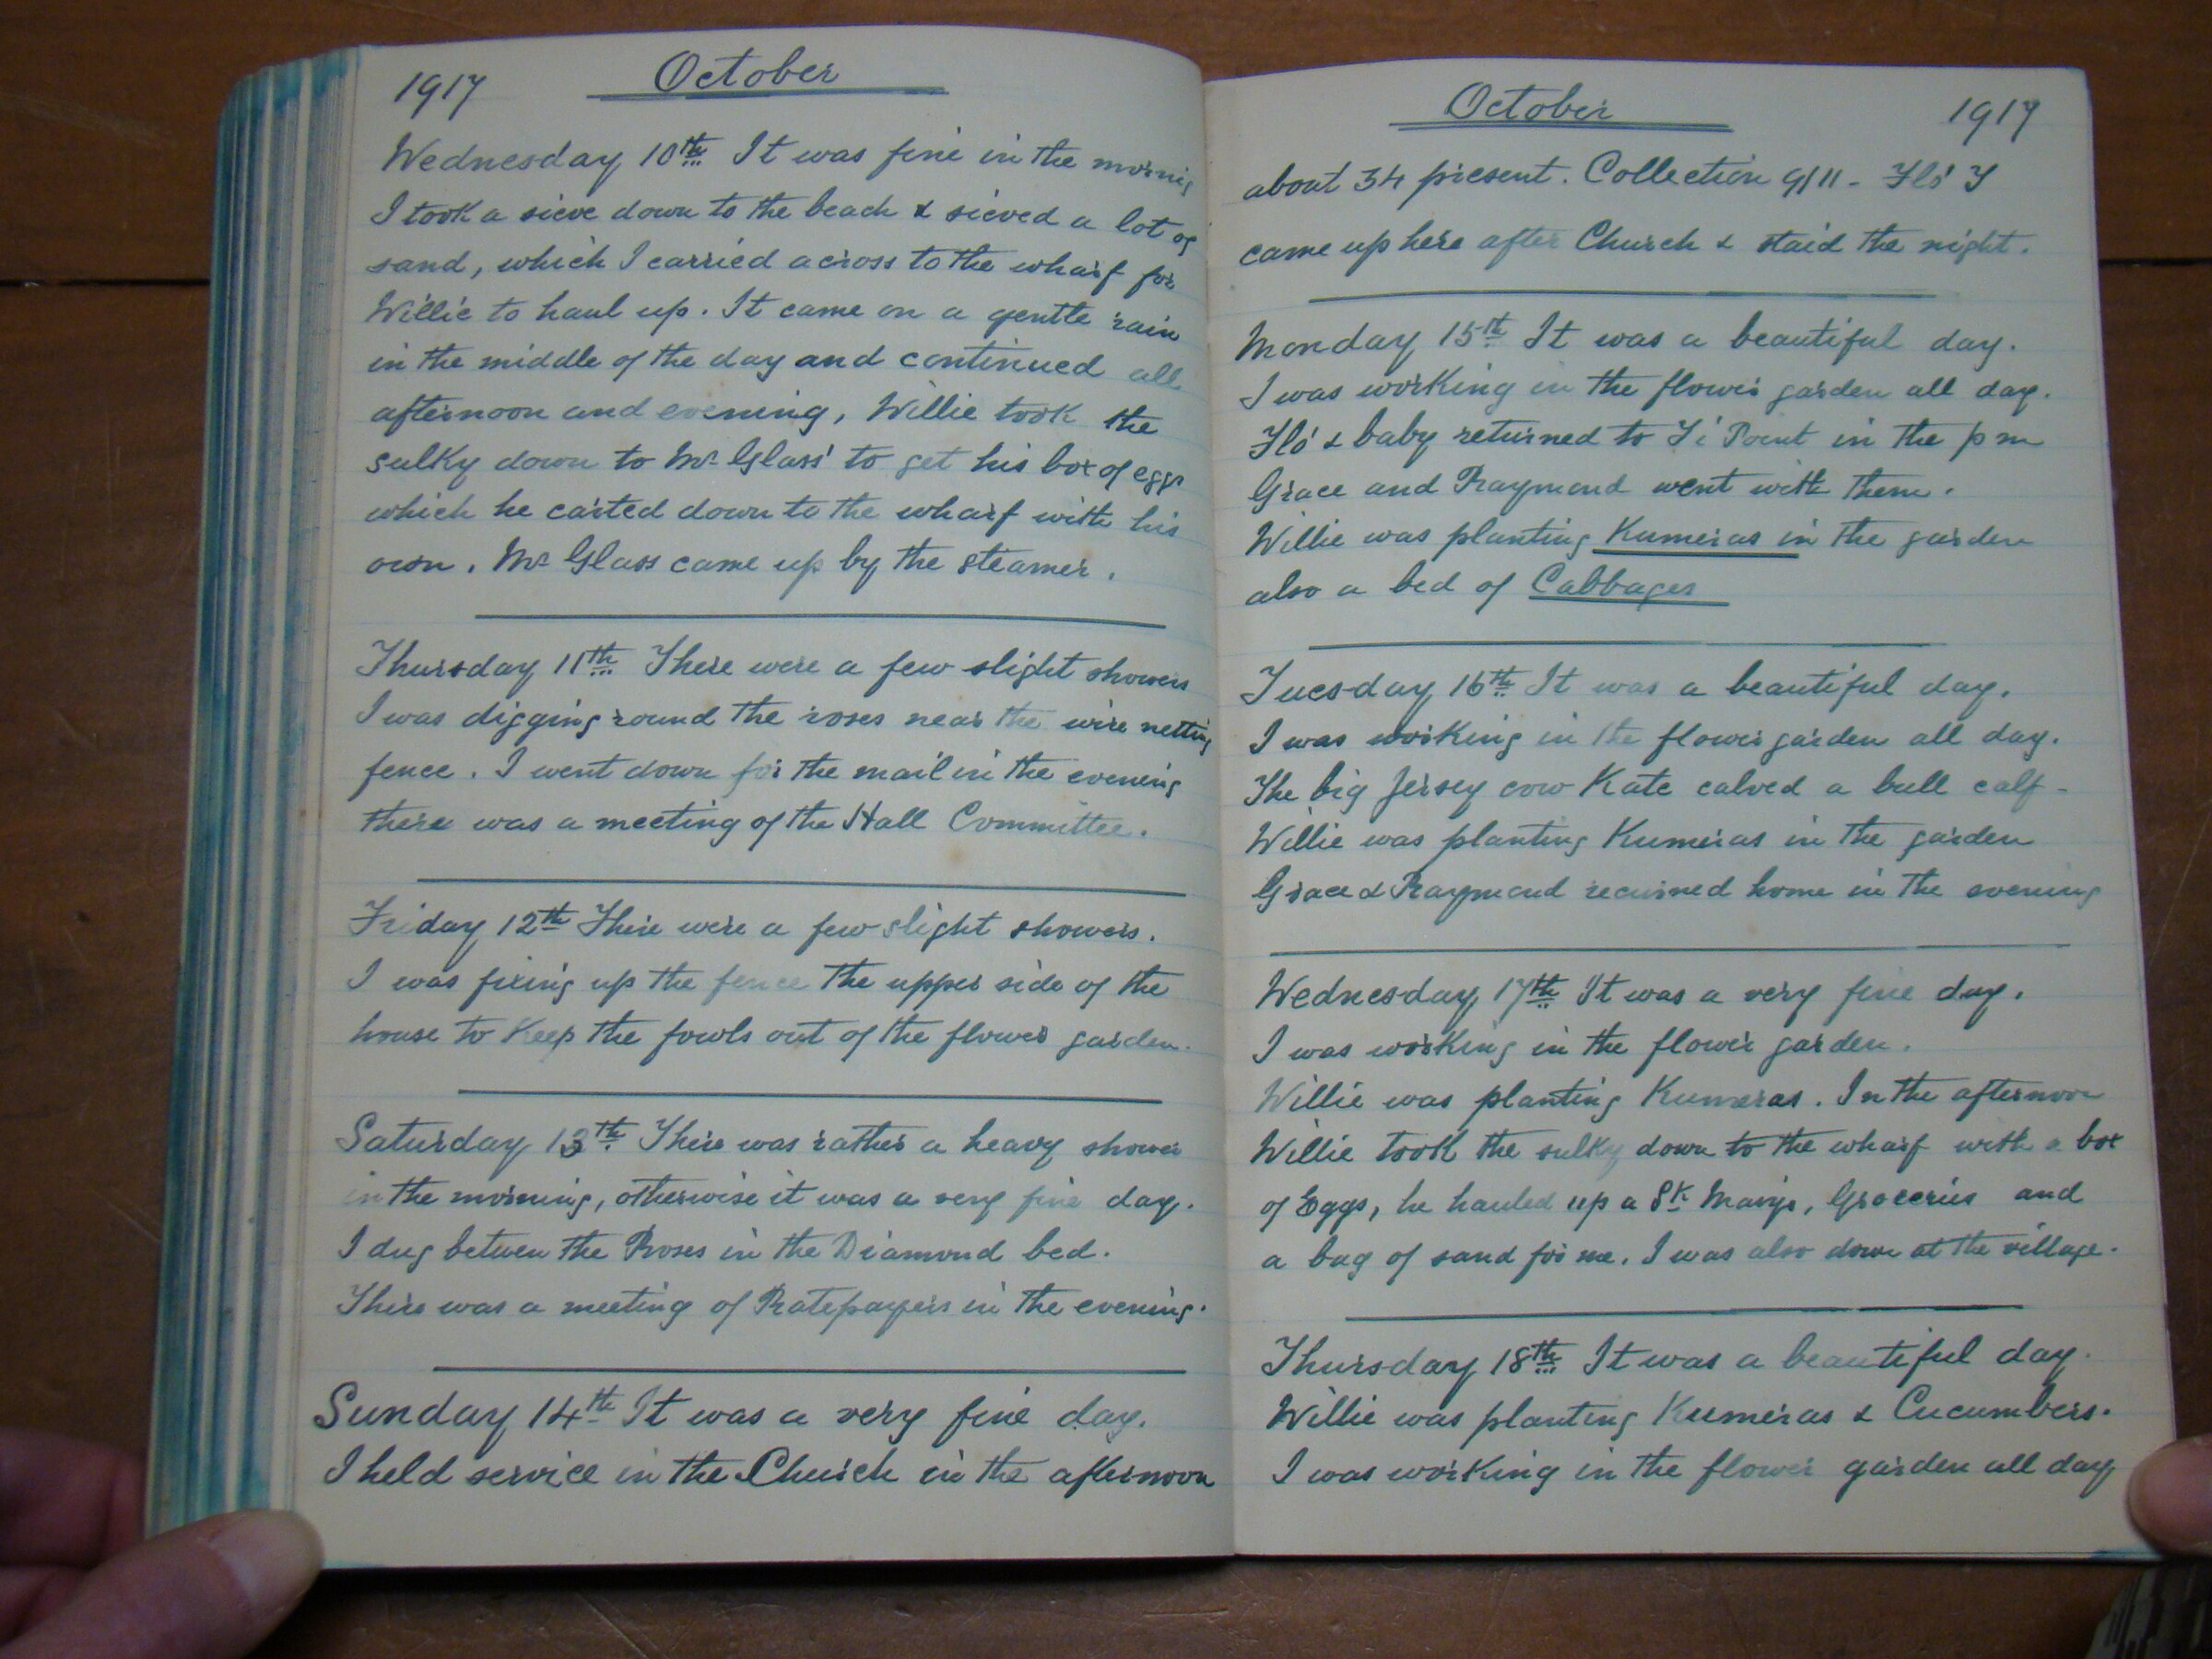 1917 October
Wednesday 10th It was fine in the mornig
I took a sieve down to the beach & sieved a lot of
sand, which I carried across to the wharf for
Willie to haul up. It came on a gentle rain
in the middle of the day and continued all
afternoon and evening, Willie took the
sulky down to Mr Glass' to get his box of eggs
which he carted down to the wharf with his
own. Mr Glass came up by the steamer.
Thursday 11th There were a few slight showers
I was digging round the roses near the wire netting
fence. I went down for the mail in the evening
there was a meeting of the Hall Committee.
Friday 12th There were a few slight showers.
I was fixing up the fence the upper side of the
house to keep the fowls out of the flower garden.
Saturday 13th There was rather a heavy shower
in the morning, otherwise it was a very fine day.
I dug betwen the Roses in the Diamond bed.
There was a meeting of Ratepayers in the evening.
Sunday 14th It was a very fine day.
I held service in the Church in the afternoon
October 1917
about 34 present. Collection 9/11 - Flo' T
came up here after Church & staid the night.
Monday 15th It was a beautiful day.
I was working in the flower garden all day.
Flo' & baby returned to Ti Point in the pm
Grace and Raymond went with them.
Willie was planting Kumeras in the garden
also a bed of Cabbages
Tuesday 16th It was a beautiful day.
I was working in the flower garden all day.
The big Jersey cow Kate calved a bull calf -
Willie was planting Kumeras in the garden
Grace & Raymond reurned home in the evening
Wednesday 17th It was a very fine day.
I was working in the flower garden.
Willie was planting Kumeras. In the afternoon
Willie took the sulky down to the wharf with a box
of Eggs, he hauled up a Sk , Groceries and
a bag of sand for me. I was also down at the village.
Thursday 18th It was a beautiful day.
Willie was planting Kumeras & Cucumbers.
I was working in the flower garden all day